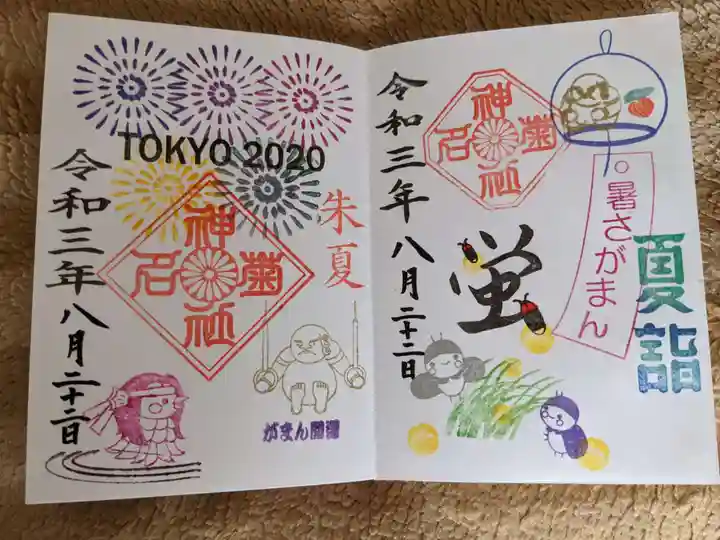 TOKYO 2020
朱夏
菊名神社
令和三年八月二十二日
がまん
夏詣
暑さがまん
菊名神社
蛍
令和三年八月二十二日